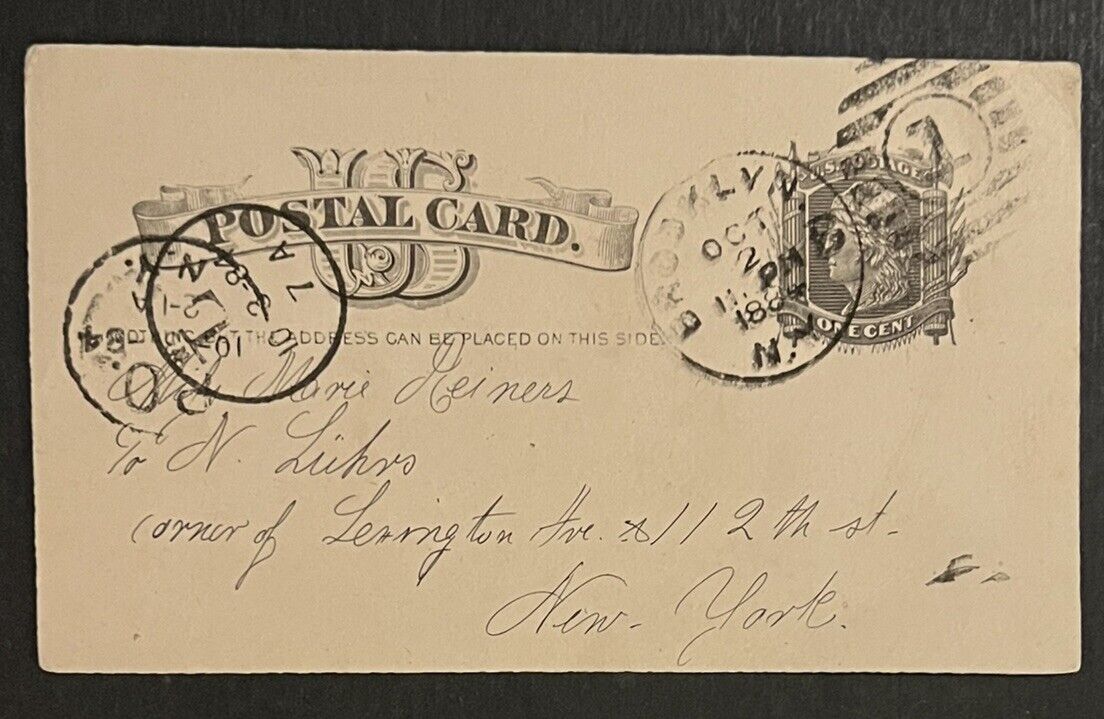 US
POSTAL CARD.
U.S. POSTAGE
ONE CENT
BROOKLYN
OCT
2
11 PM
1884
N.Y.
1
THE ADDRESS CAN BE PLACED ON THIS SIDE.
Marie Reiners
To N. Lührs
corner of Lexington Ave. & 112th st.
New-York.